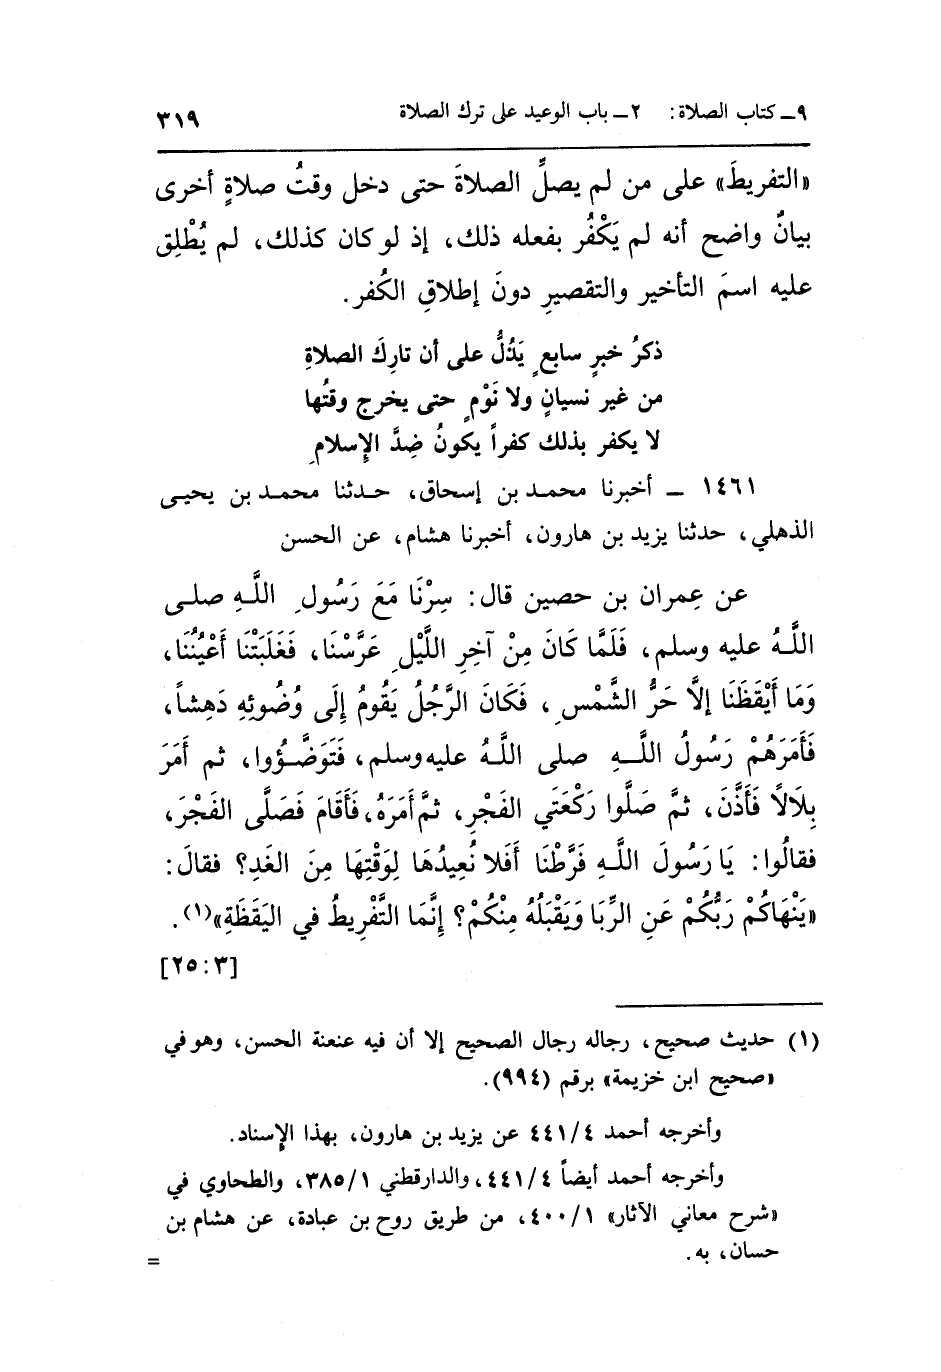 ٩ـ كتاب الصلاة: ٢ـ باب الوعيد على ترك الصلاة ٣١٩
«التفريطَ» على من لم يصلِّ الصلاةَ حتى دخل وقتُ صلاةٍ أخرى
بيانٌ واضح أنه لم يَكْفُر بفعله ذلك، إذ لو كان كذلك، لم يُطْلِق
عليه اسمَ التأخير والتقصيرِ دونَ إطلاقِ الكُفر.
ذكرُ خبرٍ سابعٍ يَدُلُّ على أن تارِكَ الصلاةِ
من غير نسيانٍ ولا نَوْمٍ حتى يخرج وقتُها
لا يكفر بذلك كفراً يكونُ ضِدَّ الإِسلامِ
١٤٦١ ـ أخبرنا محمد بن إسحاق، حدثنا محمد بن يحيى
الذهلي، حدثنا يزيد بن هارون، أخبرنا هشام، عن الحسن
عن عِمران بن حصين قال: سِرْنَا مَعَ رَسُولِ اللَّهِ صلى
اللَّهُ عليه وسلم، فَلَمَّا كَانَ مِنْ آخِرِ اللَّيْلِ عَرَّسْنَا، فَغَلَبَتْنَا أَعْيُنُنَا،
وَمَا أَيْقَظَنَا إلَّا حَرُّ الشَّمْسِ، فَكَانَ الرَّجُلُ يَقُومُ إِلَى وُضُوئِهِ دَهِشاً،
فَأَمَرَهُمْ رَسُولُ اللَّهِ صلى اللَّهُ عليه وسلم، فَتَوَضَّؤُوا، ثم أَمَرَ
بِلَالاً فَأَذَّنَ، ثمَّ صَلَّوا رَكْعَتَيِ الفَجْرِ، ثمَّ أَمَرَهُ، فَأَقَامَ فَصَلَّى الفَجْرَ،
فقالُوا: يَا رَسُولَ اللَّهِ فَرَّطْنَا أَفَلا نُعِيدُهَا لِوَقْتِهَا مِنَ الغَدِ؟ فقالَ:
«يَنْهَاكُمْ رَبُّكُمْ عَنِ الرِّبَا وَيَقْبَلُهُ مِنْكُمْ؟ إِنَّمَا التَّفْرِيطُ في اليَقَظَةِ»(١).
[٣:٢٥]
(١) حديث صحيح، رجاله رجال الصحيح إلا أن فيه عنعنة الحسن، وهو في
«صحيح ابن خزيمة» برقم (٩٩٤).
وأخرجه أحمد ٤/٤٤١ عن يزيد بن هارون، بهذا الإِسناد.
وأخرجه أحمد أيضاً ٤/٤٤١، والدارقطني ١/٣٨٥، والطحاوي في
«شرح معاني الآثار» ١/٤٠٠، من طريق روح بن عبادة، عن هشام بن
حسان، به.
=